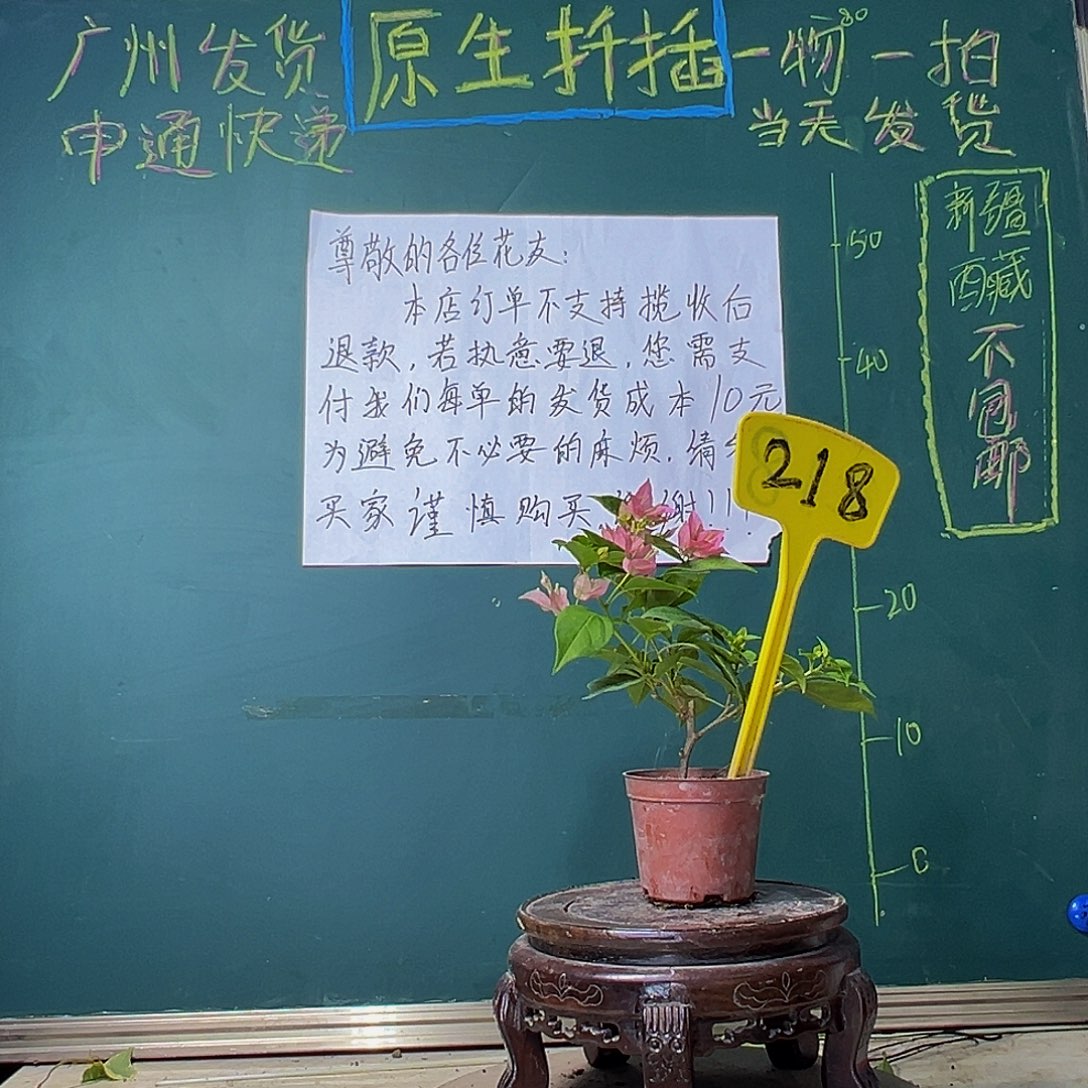 广州发货
申通快递
原生扦插
一物一拍
当天发货
80
尊敬的各位花友:
本店订单不支持揽收后
退款,若执意要退,您需支
付我们每单的发货成本10元
为避免不必要的麻烦,请
买家谨慎购买 谢!!!
218
50
40
20
10
0
新疆
西藏
不包邮